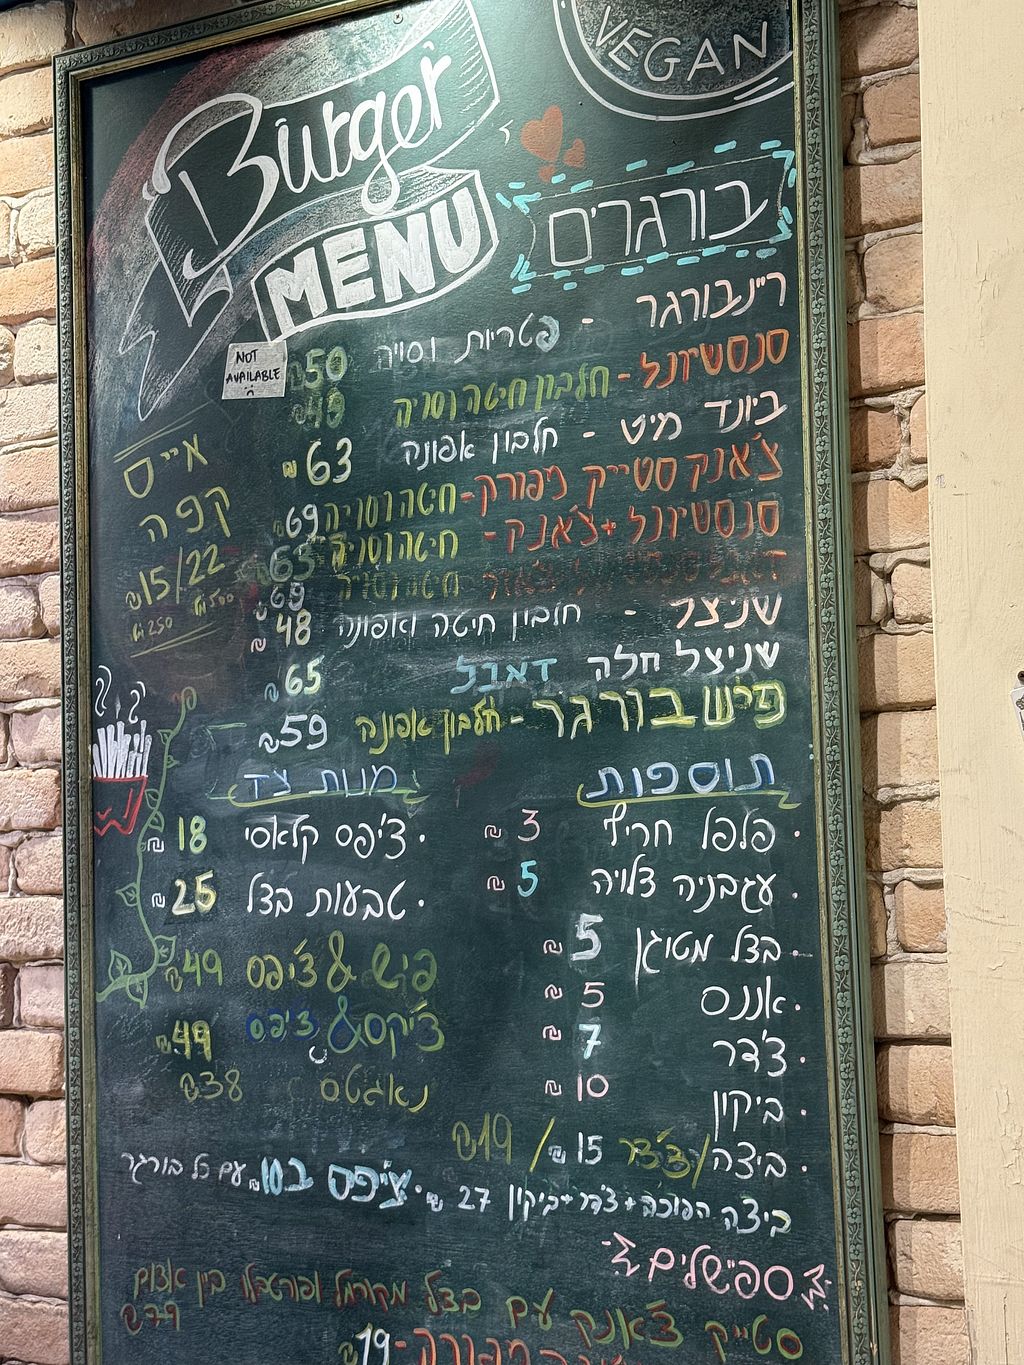 Burger
VEGAN
MENU
בורגרים
ריינבורגר - פטריות וסויה ₪50
NOT AVAILABLE
סנסשיונל - חלבון חיטה וסויה ₪49
ביונד מיט - חלבון אפונה ₪63
צ'אנק סטייק מפורק - חיטה וסויה ₪69
סנסשיונל + צ'אנק - חיטה וסויה ₪65
חיטה וסויה ₪69
שניצל - חלבון חיטה ואפונה ₪48
שניצל חלה דאבל ₪65
פיש בורגר - חלבון אפונה ₪59
אייס
קפה
₪15/22
תוספות
· פלפל חריף ₪3
· עגבניה צלויה ₪5
· בצל מטוגן ₪5
· אננס ₪5
· צ'דר ₪7
· ביקון ₪10
· ביצה/צ'דר ₪15 / ₪19
ביצה הפוכה+צ'דר+ביקון ₪27
מנות צד
· צ'יפס קלאסי ₪18
· טבעות בצל ₪25
פיש & צ'יפס ₪49
צ'יקס & צ'יפס ₪49
נאגטס ₪38
· צ'יפס ב10₪ עם כל בורגר
ספיישלים
סטייק צ'אנק עם בצל מקורמל ופורטבלו בין
₪79
₪19-